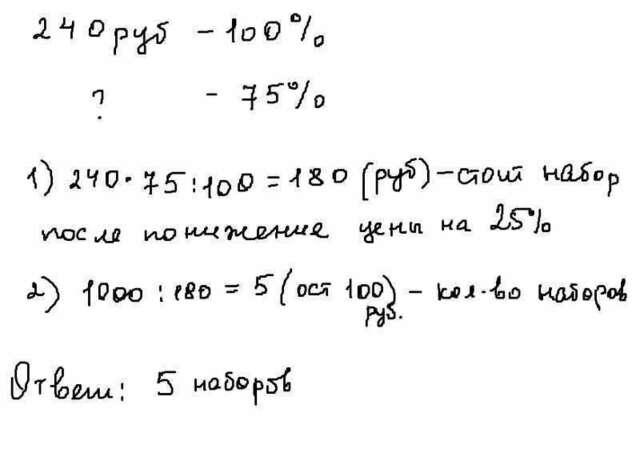 240 руб - 100%
? - 75%
1) 240·75:100=180 (руб)-стоит набор
после понижение цены на 25%
2) 1000:180=5 (ост 100) - кол-во наборов
руб.
Ответ: 5 наборов